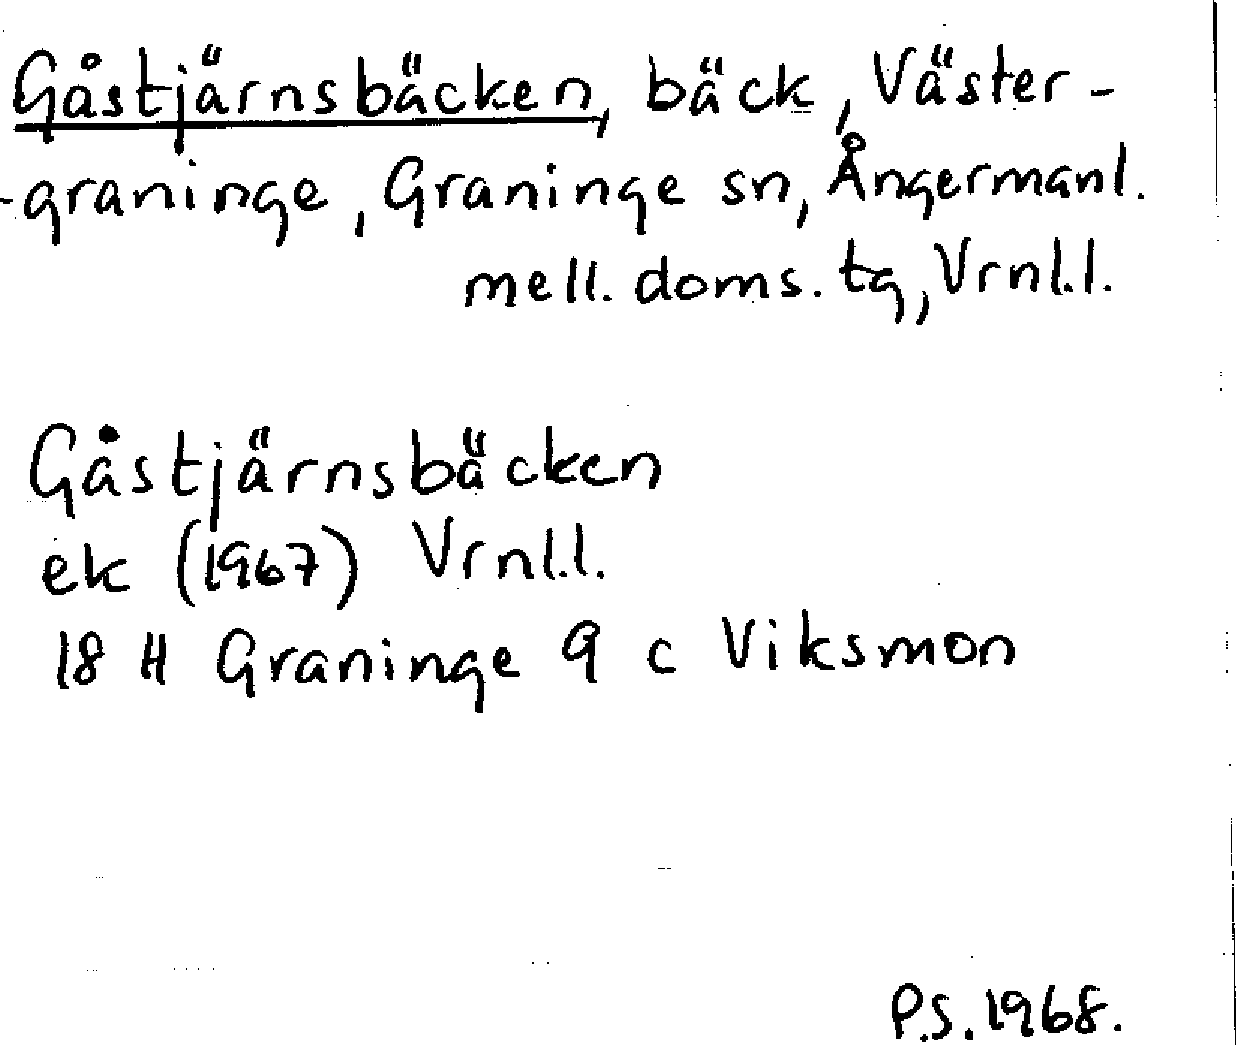 Gåstjärnsbäcken, bäck, Väster-
-graninge, Graninge sn, Ångermanl.
mell. doms. tg, Vrnl.l.
Gåstjärnsbäcken
ek (1967) Vrnl.l.
18 H Graninge 9 c Viksmon
P.S. 1968.